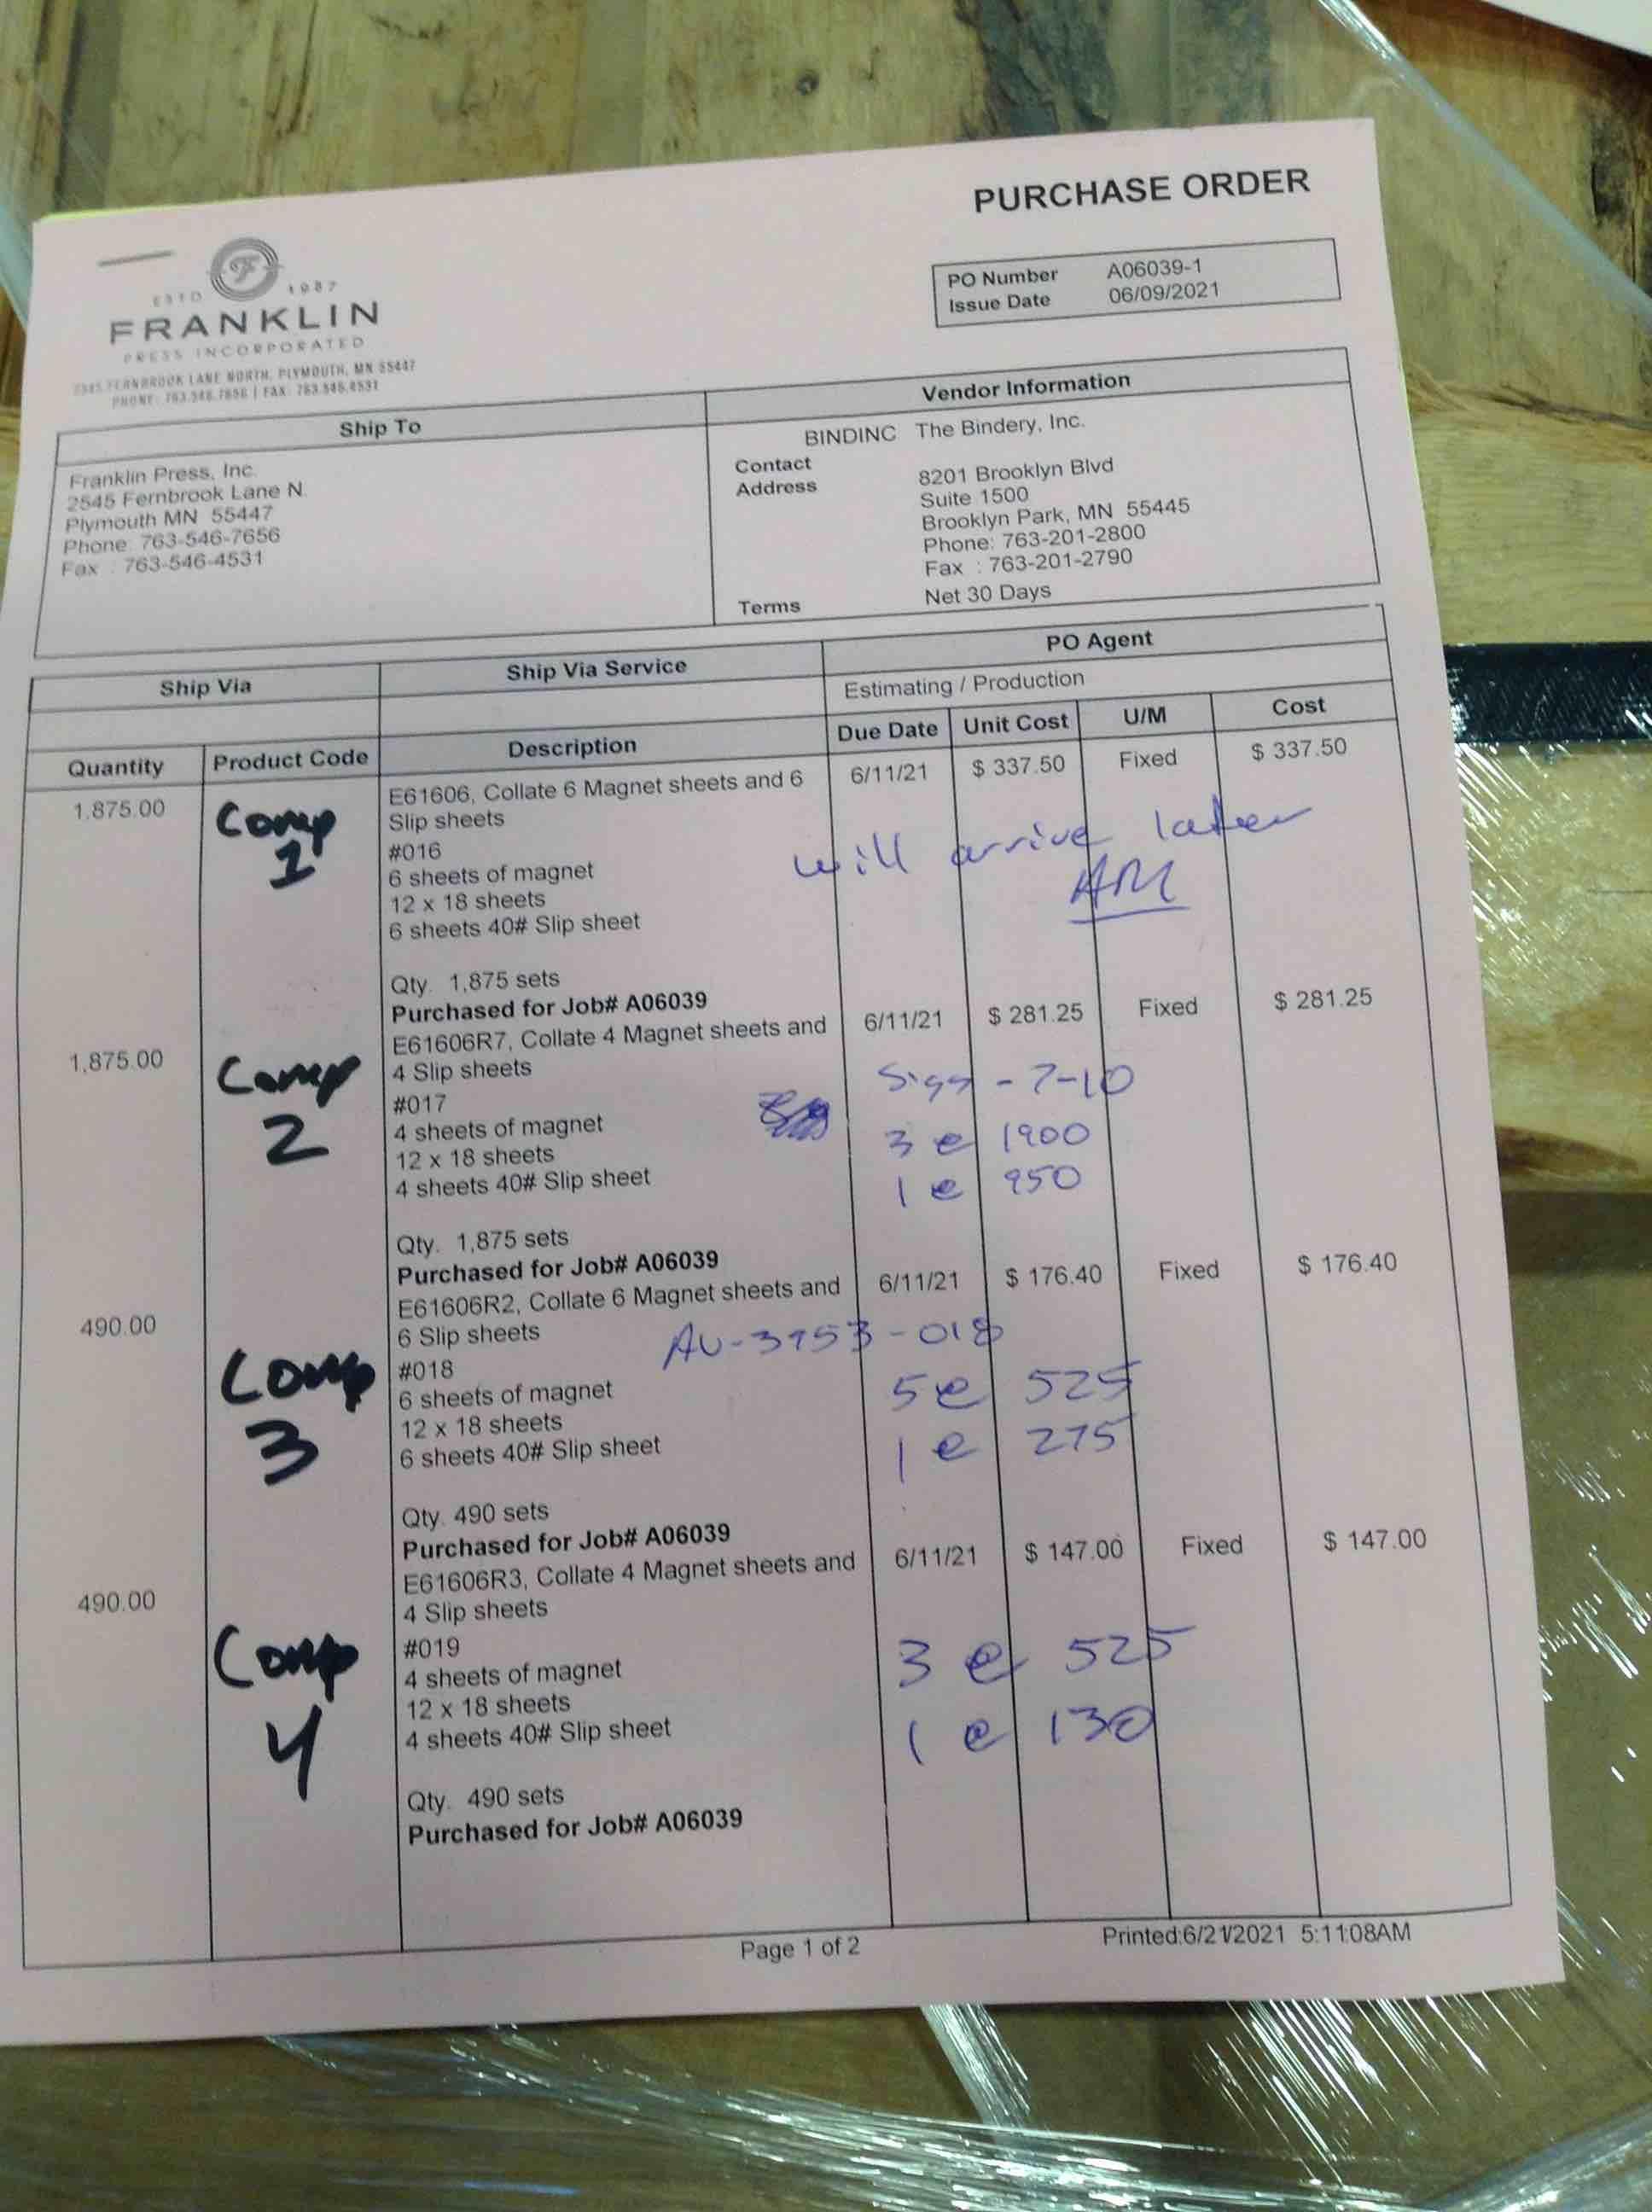 PURCHASE ORDER
PO Number A06039-1
Issue Date 06/09/2021
ESTD 1987
FRANKLIN
PRESS INCORPORATED
2545 FERNBROOK LANE NORTH, PLYMOUTH, MN 55447
PHONE: 763.546.7656 | FAX: 763.546.4531
Ship To
Franklin Press, Inc.
2545 Fernbrook Lane N.
Plymouth MN 55447
Phone: 763-546-7656
Fax : 763-546-4531
Vendor Information
BINDINC The Bindery, Inc.
Contact
Address 8201 Brooklyn Blvd
Suite 1500
Brooklyn Park, MN 55445
Phone: 763-201-2800
Fax : 763-201-2790
Terms Net 30 Days
Ship Via Ship Via Service PO Agent
Estimating / Production
Quantity Product Code Description Due Date Unit Cost U/M Cost
1,875.00 E61606, Collate 6 Magnet sheets and 6 6/11/21 $ 337.50 Fixed $ 337.50
Comp Slip sheets
1 #016 will arrive later
6 sheets of magnet AM
12 x 18 sheets
6 sheets 40# Slip sheet
Qty. 1,875 sets
Purchased for Job# A06039
1,875.00 E61606R7, Collate 4 Magnet sheets and 6/11/21 $ 281.25 Fixed $ 281.25
Comp 4 Slip sheets
2 #017 Sigs - 7-10
4 sheets of magnet 3 @ 1900
12 x 18 sheets
4 sheets 40# Slip sheet 1 @ 950
Qty. 1,875 sets
Purchased for Job# A06039
490.00 E61606R2, Collate 6 Magnet sheets and 6/11/21 $ 176.40 Fixed $ 176.40
6 Slip sheets AU-3953-018
Comp #018
3 6 sheets of magnet 5 @ 525
12 x 18 sheets
6 sheets 40# Slip sheet 1 @ 275
Qty. 490 sets
Purchased for Job# A06039
490.00 E61606R3, Collate 4 Magnet sheets and 6/11/21 $ 147.00 Fixed $ 147.00
4 Slip sheets
Comp #019
4 4 sheets of magnet 3 @ 525
12 x 18 sheets
4 sheets 40# Slip sheet 1 @ 130
Qty. 490 sets
Purchased for Job# A06039
Page 1 of 2
Printed:6/21/2021 5:11:08AM